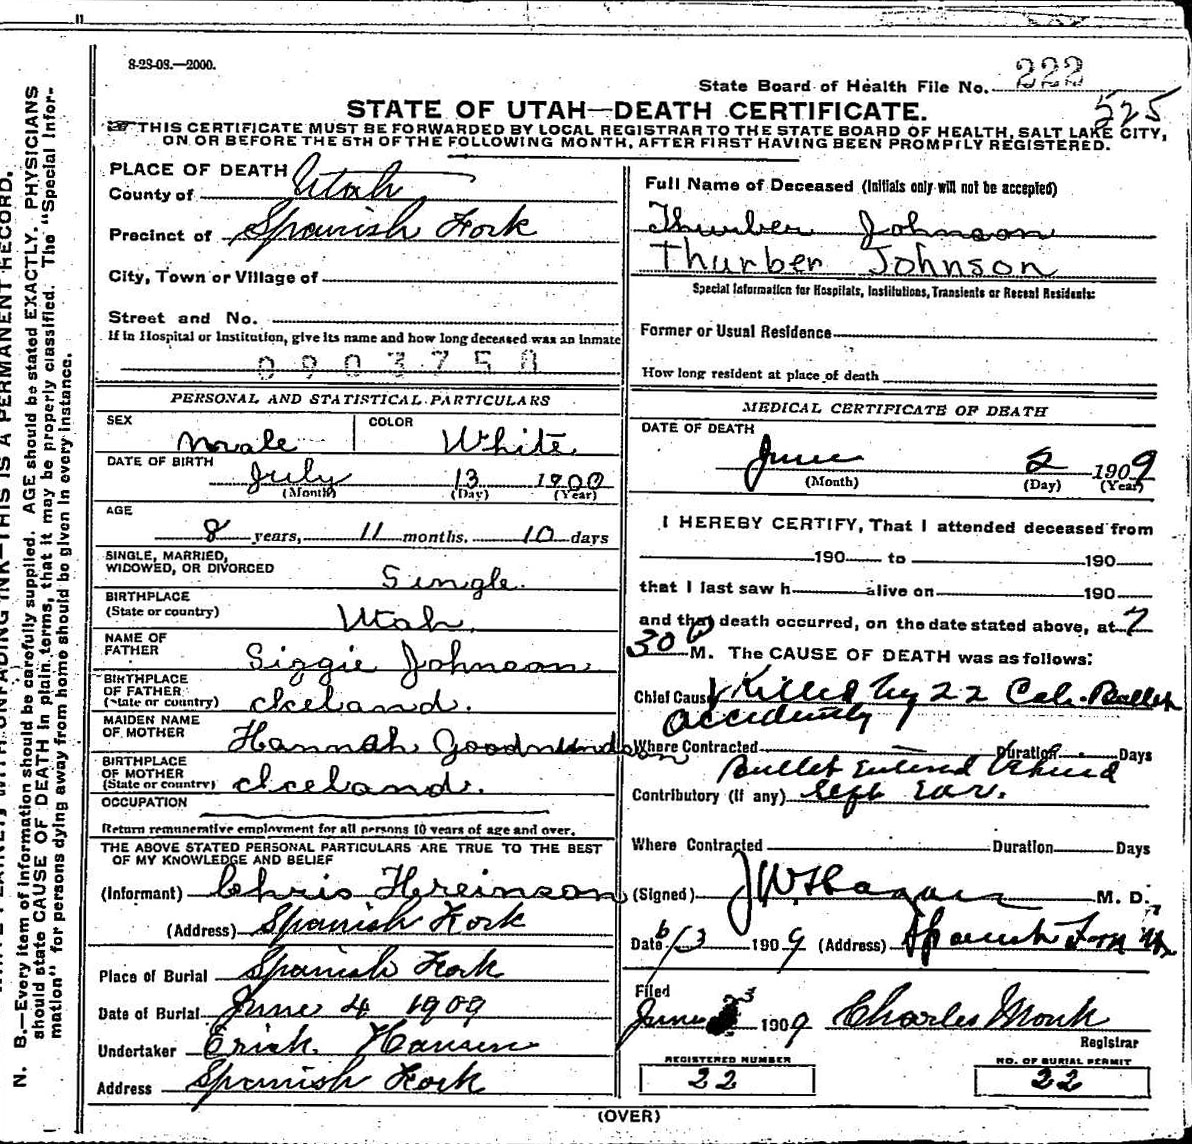 11
8-23-08.—2000.
State Board of Health File No. 222
525
STATE OF UTAH—DEATH CERTIFICATE.
THIS CERTIFICATE MUST BE FORWARDED BY LOCAL REGISTRAR TO THE STATE BOARD OF HEALTH, SALT LAKE CITY,
ON OR BEFORE THE 5TH OF THE FOLLOWING MONTH, AFTER FIRST HAVING BEEN PROMPTLY REGISTERED.
PLACE OF DEATH
County of Utah
Precinct of Spanish Fork
City, Town or Village of
Street and No.
If in Hospital or Institution, give its name and how long deceased was an inmate
0903758
PERSONAL AND STATISTICAL PARTICULARS
SEX Male COLOR White
DATE OF BIRTH July 13 1900
(Month) (Day) (Year)
AGE
8 years, 11 months, 10 days
SINGLE, MARRIED,
WIDOWED, OR DIVORCED Single
BIRTHPLACE
(State or country) Utah
NAME OF
FATHER Siggie Johnson
BIRTHPLACE
OF FATHER
(State or country) Iceland.
MAIDEN NAME
OF MOTHER Hannah Goodmundson
BIRTHPLACE
OF MOTHER
(State or country) Iceland.
OCCUPATION
Return remunerative employment for all persons 10 years of age and over.
THE ABOVE STATED PERSONAL PARTICULARS ARE TRUE TO THE BEST
OF MY KNOWLEDGE AND BELIEF
(Informant) Chris Hreinson
(Address) Spanish Fork
Place of Burial Spanish Fork
Date of Burial June 4 1909
Undertaker Erick Hansen
Address Spanish Fork
Full Name of Deceased (Initials only will not be accepted)
Thurber Johnson
Thurber Johnson
Special Information for Hospitals, Institutions, Transients or Recent Residents:
Former or Usual Residence
How long resident at place of death
MEDICAL CERTIFICATE OF DEATH
DATE OF DEATH
June 2 1909
(Month) (Day) (Year)
I HEREBY CERTIFY, That I attended deceased from
190 to 190
that I last saw h alive on 190
and that death occurred, on the date stated above, at 7
30 P M. The CAUSE OF DEATH was as follows:
Chief Cause Killed by 22 Cal. Bullet
accidently
Where Contracted Duration Days
Bullet entered behind
Contributory (if any) left ear.
Where Contracted Duration Days
(Signed) J W Hagan M. D.
Date 6/3 1909 (Address) Spanish Fork Ut
Filed
June 3 1909 Charles Monk
Registrar
REGISTERED NUMBER
22
NO. OF BURIAL PERMIT
22
(OVER)
N. B.—Every item of information should be carefully supplied. AGE should be stated EXACTLY. PHYSICIANS
should state CAUSE OF DEATH in plain terms, that it may be properly classified. The "Special Infor-
mation" for persons dying away from home should be given in every instance.